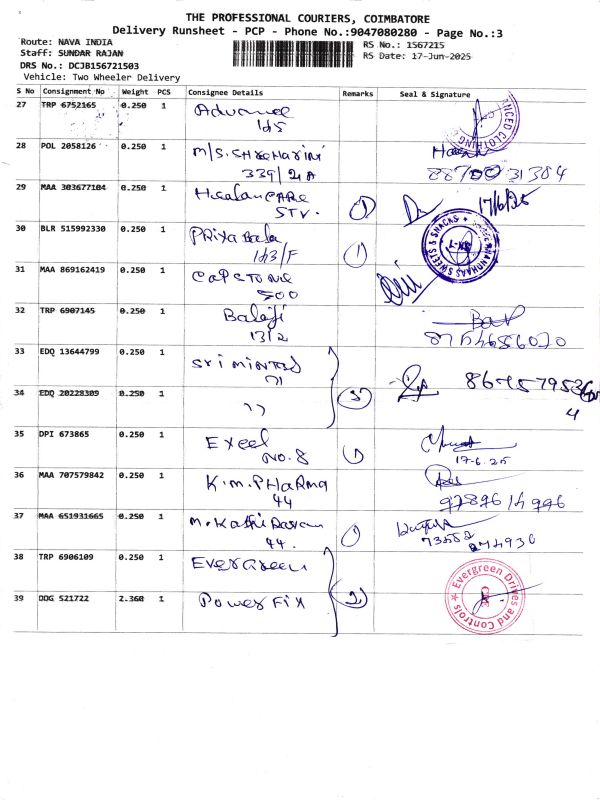 THE PROFESSIONAL COURIERS, COIMBATORE
Delivery Runsheet - PCP - Phone No.:9047080280 - Page No.:3
Route: NAVA INDIA
RS No.: 1567215
Staff: SUNDAR RAJAN
RS Date: 17-Jun-2025
DRS No.: DCJB156721503
Vehicle: Two Wheeler Delivery
S No Consignment No Weight PCS Consignee Details Remarks Seal & Signature
27 TRP 6752165 0.250 1 Advance
1d5
28 POL 2058126 0.250 1 M/S. SHREHARINI
339/21A
8870031384
29 MAA 303677104 0.250 1 HealanCARE 1 17/6/25
STV.
30 BLR 515992330 0.250 1 PRIYA Bala 1
1d3/F
31 MAA 869162419 0.250 1 CAPSTONE
500
32 TRP 6907145 0.250 1 Balaji
13/2
8754656030
33 EDQ 13644799 0.250 1 Sri
71
34 EDQ 20228309 0.250 1 ,,
35 DPI 673865 0.250 1 Excel 1
No. 8
17-6-25
36 MAA 707579842 0.250 1 K.M. PHARMA
44
9789614996
37 MAA 651931665 0.250 1 M. Kathiravan 1
44.
38 TRP 6906109 0.250 1 Evergreen
39 DDG 521722 2.360 1 Power Fix 2
Evergreen Drives
and Controls